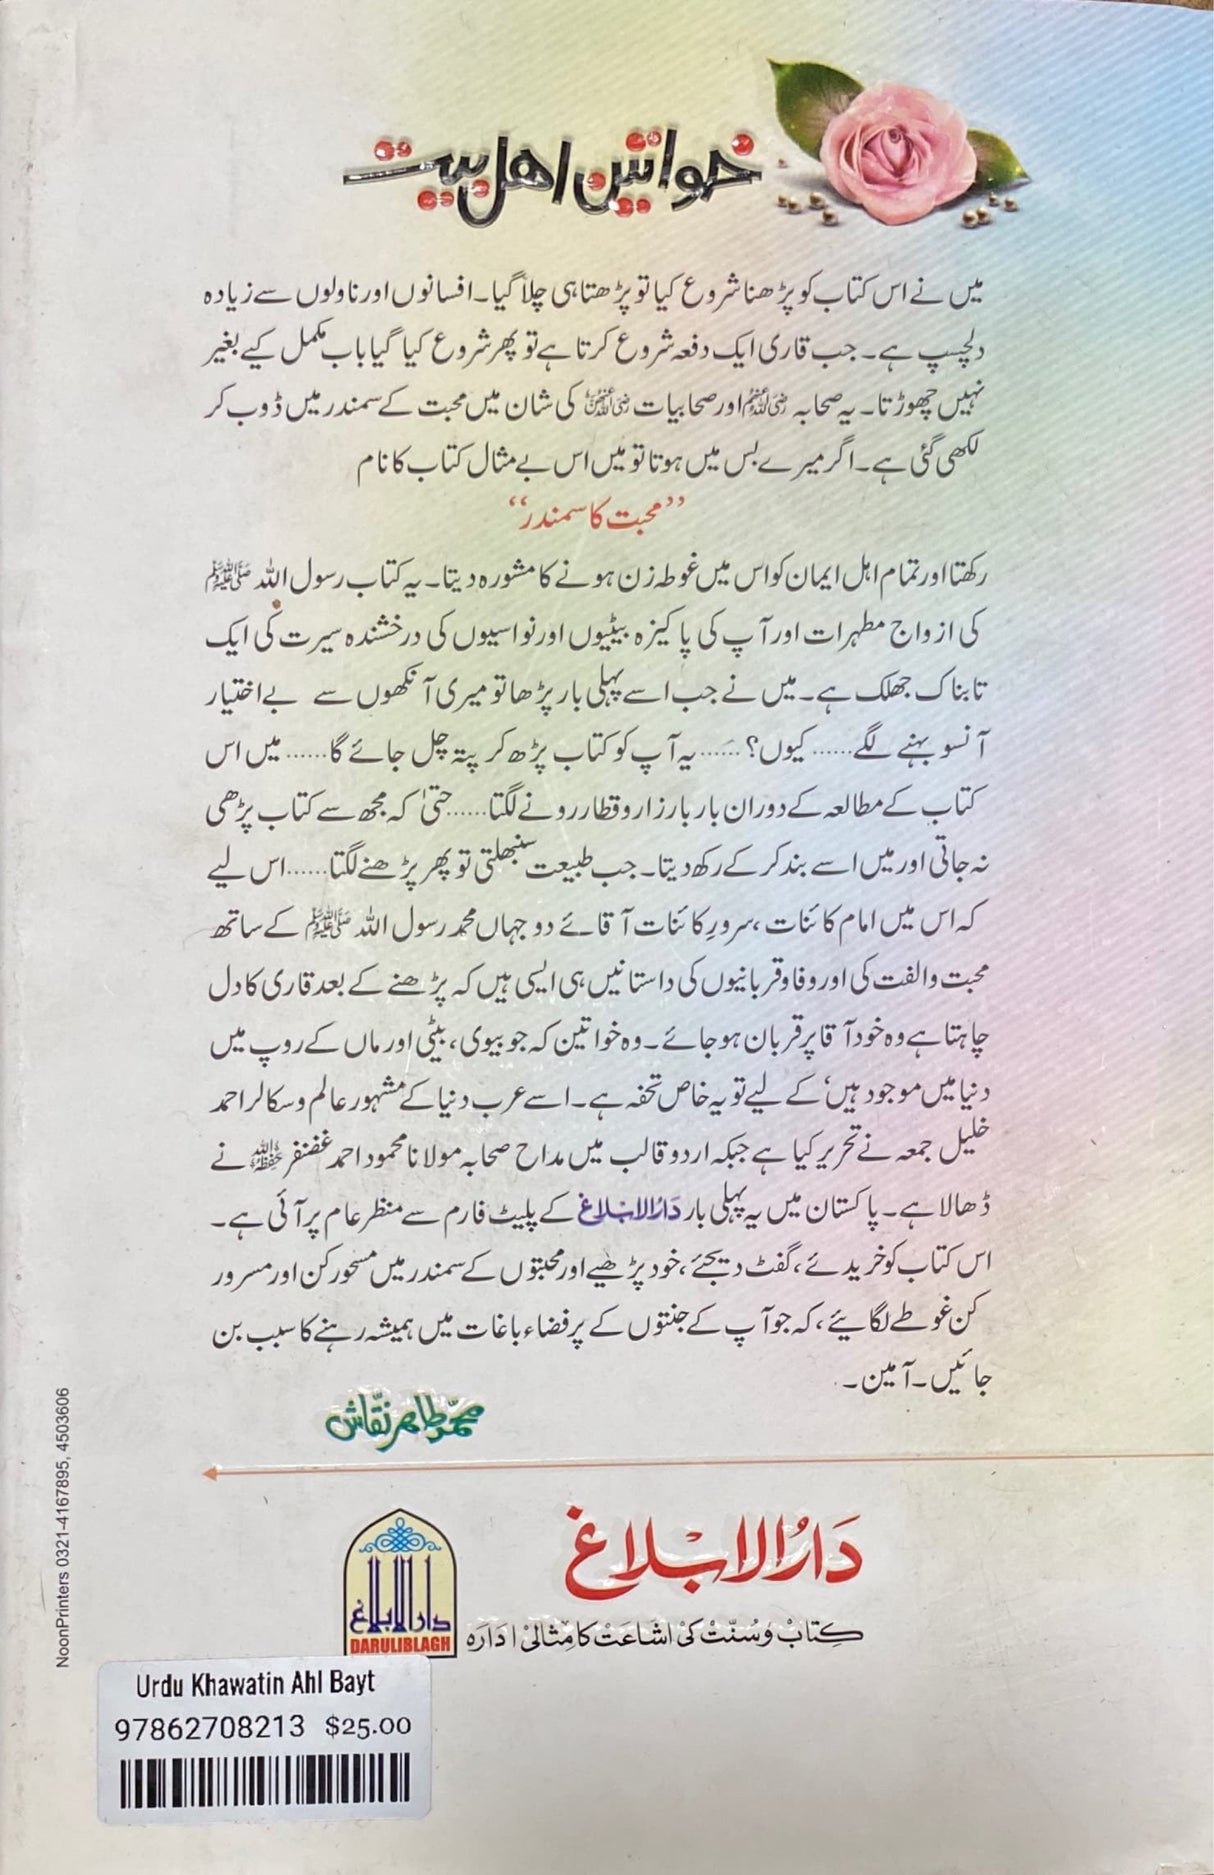 خواتین اهل بیت
میں نے اس کتاب کو پڑھنا شروع کیا تو پڑھتا ہی چلا گیا۔ افسانوں اور ناولوں سے زیادہ
دلچسپ ہے۔ جب قاری ایک دفعہ شروع کرتا ہے تو پھر شروع کیا گیا باب مکمل کیے بغیر
نہیں چھوڑتا۔ یہ صحابہ رضی اللہ عنہم اور صحابیات رضی اللہ عنہن کی شان میں محبت کے سمندر میں ڈوب کر
لکھی گئی ہے۔ اگر میرے بس میں ہوتا تو میں اس بے مثال کتاب کا نام
”محبت کا سمندر“
رکھتا اور تمام اہل ایمان کو اس میں غوطہ زن ہونے کا مشورہ دیتا۔ یہ کتاب رسول اللہ ﷺ
کی ازواج مطہرات اور آپ کی پاکیزہ بیٹیوں اور نواسیوں کی درخشندہ سیرت کی ایک
تابناک جھلک ہے۔ میں نے جب اسے پہلی بار پڑھا تو میری آنکھوں سے بے اختیار
آنسو بہنے لگے...... کیوں؟ ...... یہ آپ کو کتاب پڑھ کر پتہ چل جائے گا...... میں اس
کتاب کے مطالعہ کے دوران بار بار زار و قطار رونے لگتا...... حتیٰ کہ مجھ سے کتاب پڑھی
نہ جاتی اور میں اسے بند کر کے رکھ دیتا۔ جب طبیعت سنبھلتی تو پھر پڑھنے لگتا...... اس لیے
کہ اس میں امام کائنات، سرورِ کائنات آقائے دو جہاں محمد رسول اللہ ﷺ کے ساتھ
محبت والفت کی اور وفا و قربانیوں کی داستانیں ہی ایسی ہیں کہ پڑھنے کے بعد قاری کا دل
چاہتا ہے وہ خود آقا پر قربان ہو جائے۔ وہ خواتین کہ جو بیوی، بیٹی اور ماں کے روپ میں
دنیا میں موجود ہیں‘ کے لیے تو یہ خاص تحفہ ہے۔ اسے عرب دنیا کے مشہور عالم و سکالر احمد
خلیل جمعہ نے تحریر کیا ہے جبکہ اردو قالب میں مداح صحابہ مولانا محمود احمد غضنفر حفظہ اللہ نے
ڈھالا ہے۔ پاکستان میں یہ پہلی بار دَارُالاِبْلاغ کے پلیٹ فارم سے منظر عام پر آئی ہے۔
اس کتاب کو خریدئے، گفٹ دیجئے، خود پڑھیے اور محبتوں کے سمندر میں مسحور کن اور مسرور
کن غوطے لگائیے، کہ جو آپ کے جنتوں کے پر فضاء باغات میں ہمیشہ رہنے کا سبب بن
جائیں۔ آمین۔
محمّد طاہر نقّاش
دَارُالاِبْلاغ
کِتابْ وسُنّتْ کی اشاعَتْ کا مِثالی اِدَارَہ
دارالابلاغ
DARULIBLAGH
NoonPrinters 0321-4167895, 4503606
Urdu Khawatin Ahl Bayt
97862708213 $25.00